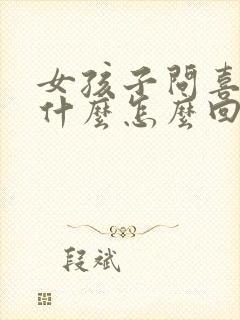 女孩子問喜
什麼怎麼回
段斌